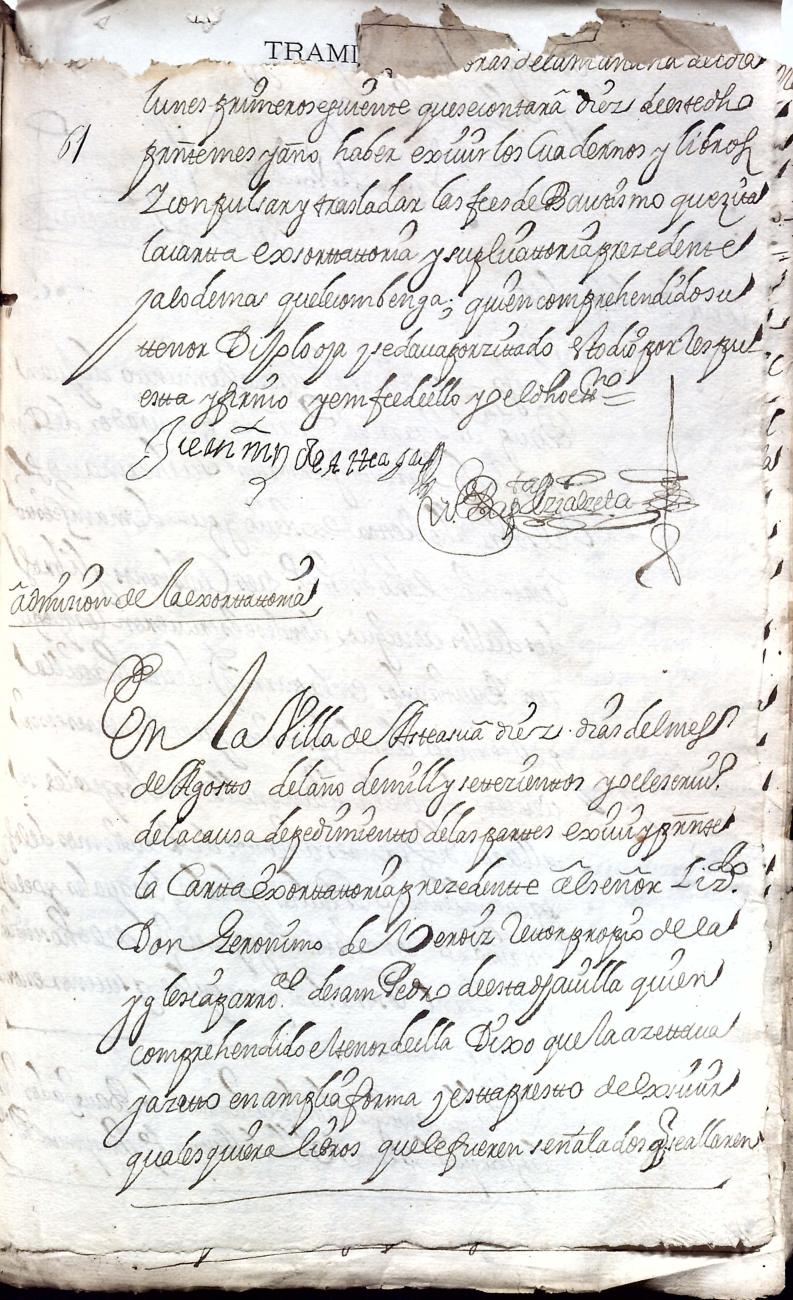 TRAMI
oras de la mañana de el dia
lunes primero seguiente que se contarâ diez de este dho
61
prnte mes y año, haber exiuir los Cuadernos y libros
y conpulsar y trasladar las fees de Bautismo que zita
la cartta exsorttattoria y suplicattoria prezedente
ja lo demas que le combenga; quien comprehendido su
ttenor Dijo lo oja y se daua por zittado Esto dio por respu
estta y firmo y en fee de ello yo el dho essno =
Juan mrn de Artteaga
Bap.ta Yrialzeta
âdmision de la exorttattoria
En la Villa de Astteasuâ diez dias del mes
de Agostto del año de mill y settezienttos yo el escriu.º
de la causa de pedimientto de las parttes exiui y prntte
la Cartta exorttattoria prezedentte âl señor Liz.do
Don Geronimo de Rettor propio de la
yglesia parro.al de sam Pedro de esta dha villa quien
comprehendido el tenor de ella Dixo que la azettaua
ja zitto en amplia forma y estta prestto de exsiuir
quales quiera libros que le fueren señalados q se allaren